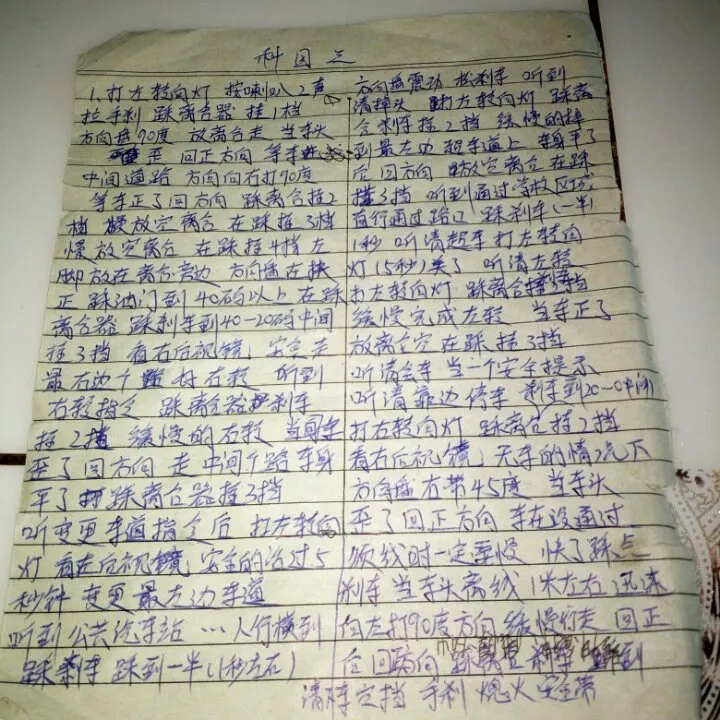 科目三
1、打左转向灯 按喇叭2声
拉手刹 踩离合器 挂1档
方向盘90度 放离合走 当车头
歪 回正方向 等车
中间道路 方向向右打90度
等车正了回方向 踩离合挂2
档 慢放完离合 在踩挂3档
慢放完离合 在踩挂4档 左
脚放在离合旁边 方向盘左
正 踩油门到40码以上 在踩
离合器 踩刹车到40-20码中间
挂3档 看右后视镜 安全走
最右边个 右转 听到
右转指令 踩离合器 刹车
挂2档 缓慢的右转 当车
歪了回方向 走中间个路 车身
平了 踩离合器挂3档
听变更车道指令后 打左转向
灯 看左后视镜 安全的话过5
秒钟 变更最左边车道
听到公共汽车站 …人行横到
踩刹车 踩到一半(1秒左右)
方向盘震动 松刹车 听到
清掉头 打左转向灯 踩离
合刹车挂2档 缓慢的掉
到最左边 车道上 车身平了
后回方向 放完离合在踩
挂3档 听到通过学校区域
直行通过路口 踩刹车(一半)
1秒 听清超车 打左转向
灯(5秒)关了 听清左转
打左转向灯 踩离合挂档
缓慢完成左转 当车正了
放离合完在踩挂3档
听清会车 当一个安全提示
听清靠边停车 刹车到20-0中间
打右转向灯 踩离合挂2档
看右后视镜 无车的情况下
方向盘右带45度 当车头
歪了回正方向 车在没通过
线时一定要慢 快了踩点
刹车 当车头离线1米左右 迅速
向左打90度方向 缓慢的走 回正
后回方向 踩离合 刹车 听到
清停车 空挡 手刹 熄火 安全带